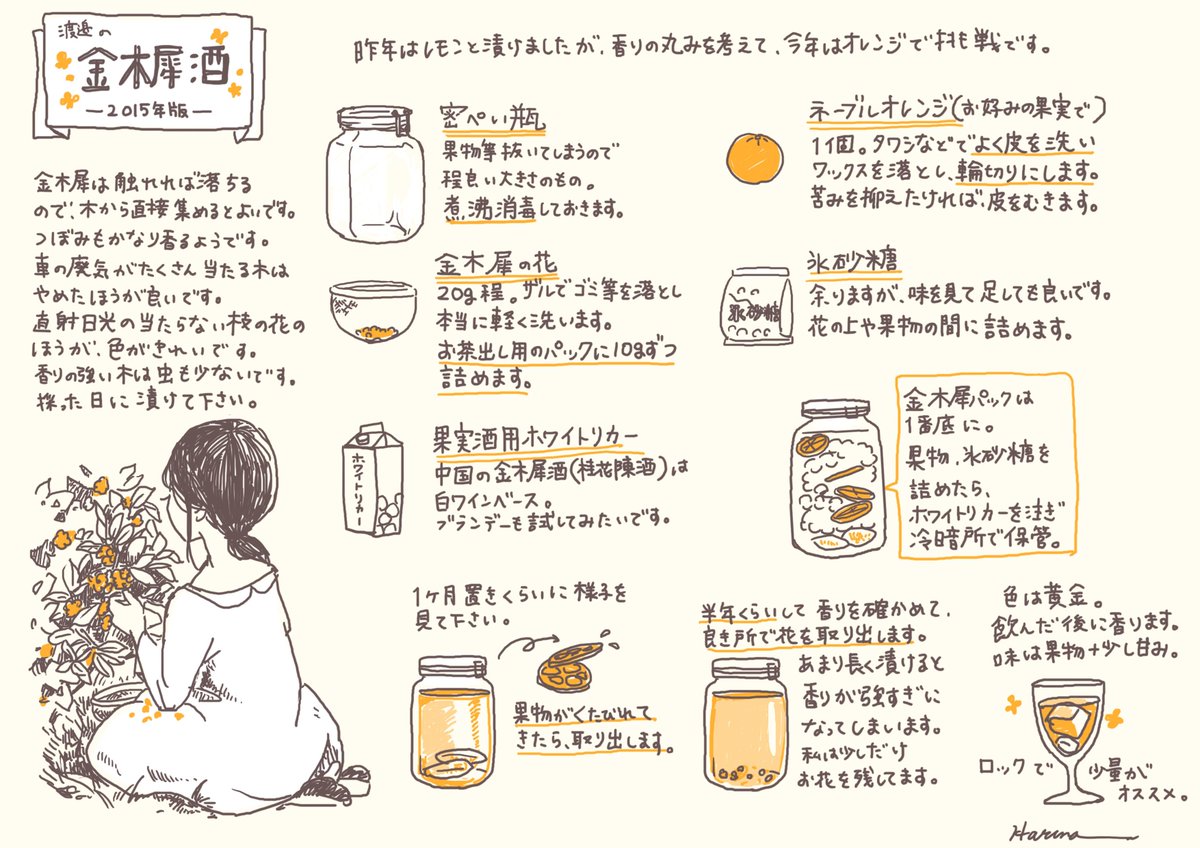 渡邉の
金木犀酒
―2015年版―
昨年はレモンと漬けましたが、香りの丸みを考えて、今年はオレンジで挑戦です。
金木犀は触れれば落ちる
ので、木から直接集めるとよいです。
つぼみもかなり香るようです。
車の廃気がたくさん当たる木は
やめたほうが良いです。
直射日光の当たらない枝の花の
ほうが、色がきれいです。
香りの強い木は虫も少ないです。
採った日に漬けて下さい。
密ぺい瓶
果物等抜いてしまうので
程良い大きさのもの。
煮沸消毒しておきます。
ネーブルオレンジ(お好みの果実で)
1個。タワシなどでよく皮を洗い
ワックスを落とし、輪切りにします。
苦みを抑えたければ、皮をむきます。
金木犀の花
20g程。ザルでゴミ等を落とし
本当に軽く洗います。
お茶出し用のパックに10gずつ
詰めます。
氷砂糖
余りますが、味を見て足しても良いです。
花の上や果物の間に詰めます。
氷砂糖
果実酒用ホワイトリカー
中国の金木犀酒(桂花陳酒)は
白ワインベース。
ブランデーも試してみたいです。
ホワイトリカー
金木犀パックは
1番底に。
果物、氷砂糖を
詰めたら、
ホワイトリカーを注ぎ
冷暗所で保管。
1ヶ月置きくらいに様子を
見て下さい。
果物がくたびれて
きたら、取り出します。
半年くらいして香りを確かめて、
良き所で花を取り出します。
あまり長く漬けると
香りが強すぎに
なってしまいます。
私は少しだけ
お花を残してます。
色は黄金。
飲んだ後に香ります。
味は果物+少し甘み。
ロックで
少量が
オススメ。
Haruna